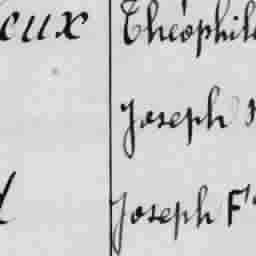 eux Théophile
Joseph
Joseph F